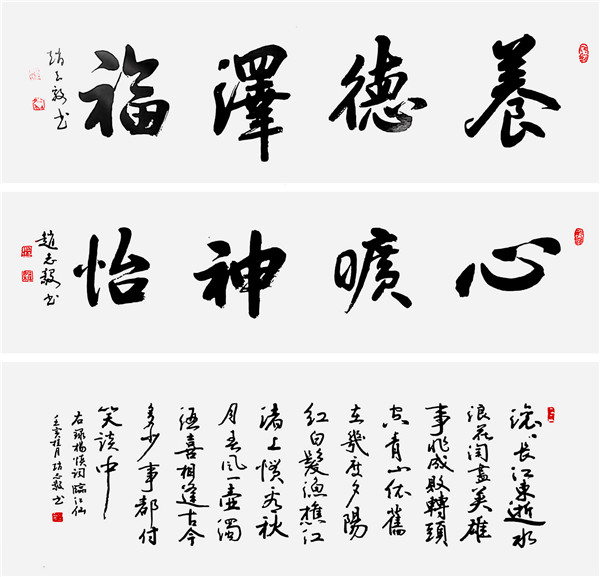 養德澤福
趙志毅书
心曠神怡
趙志毅书
滚滚長江東逝水
浪花淘盡英雄
事非成敗轉頭
空青山依舊
在幾度夕陽
紅白髮漁樵江
渚上慣看秋
月春風一壺濁
酒喜相逢古今
多少事都付
笑談中
右録楊慎词臨江仙
壬寅桂月趙志毅书